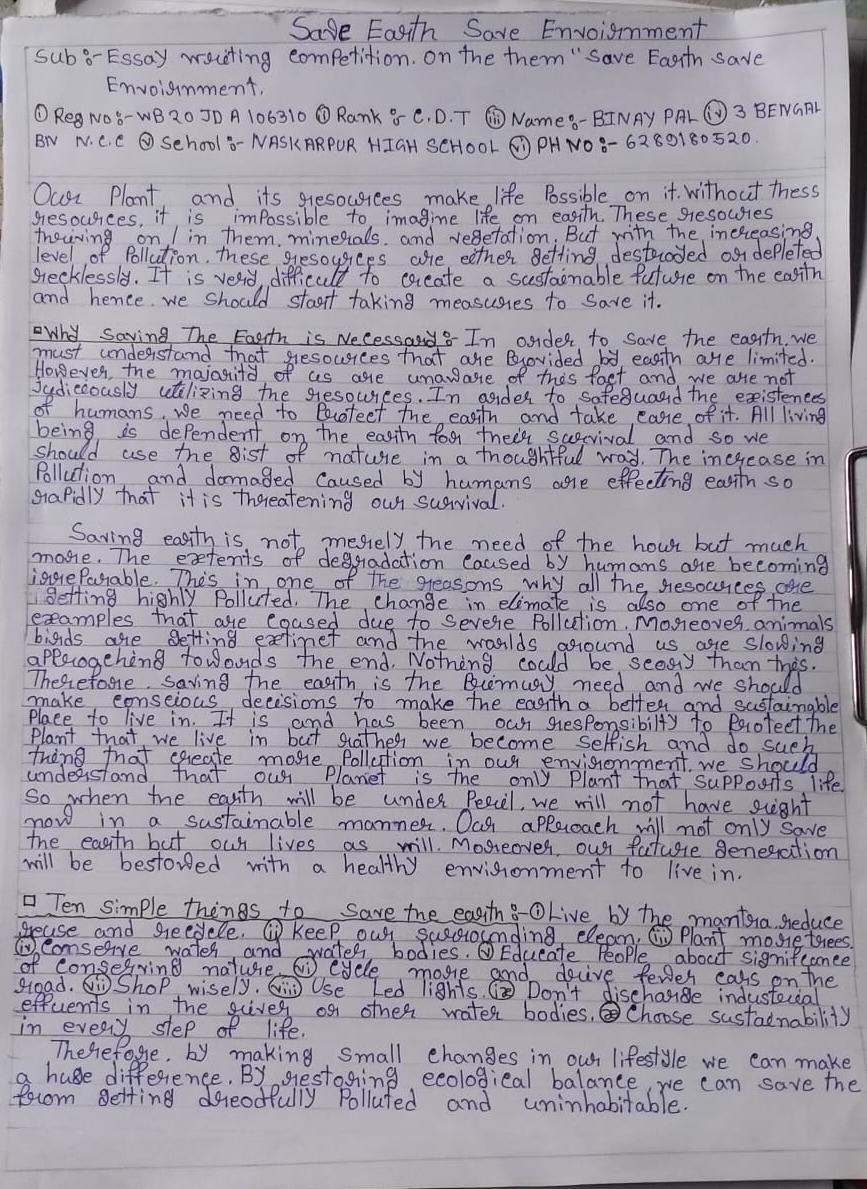 Save Earth Save Envoirnment
Sub :- Essay writing competition. on the them "save Earth save
Envoirnment.
(i) Reg No :- WB20 JD A 106310 (ii) Rank :- C.D.T (iii) Name :- BINAY PAL (iv) 3 BENGAL
BN N.C.C (v) School :- NASKARPUR HIGH SCHOOL (vi) PH NO :- 6289180520.
Our Plant and its resources make life Possible on it. Without thess
resources, it is impossible to imagine life on earth. These resoures
thriving on / in them, minerals, and vegetation. But with the increasing
level of Pollution, these resources are either getting destroyed or depleted
recklessly. It is very difficult to create a sustainable future on the earth
and hence we should start taking measures to save it.
Why Saving The Earth is Necessary :- In order to save the earth, we
must understand that resources that are Provided by earth are limited.
However, the majority of us are unaware of this fact and we are not
Judiceously utilizing the resources. In order to safeguard the existences
of humans, we need to Protect the earth and take care of it. All living
being is dependent on the earth for their survival and so we
should use the gist of nature in a thoughtful way. The increase in
Pollution and damaged caused by humans are effecting earth so
rapidly that it is threatening our survival.
Saving earth is not merely the need of the hour but much
more. The extents of degradation caused by humans are becoming
irreparable. This in one of the reasons why all the resources are
getting highly Polluted. The change in climate is also one of the
examples that are caused due to severe Pollution. Moreover, animals
birds are getting extinct and the worlds around us are slowing
approaching towards the end. Nothing could be scary than this.
Therefore, saving the earth is the Primury need and we should
make conscious decisions to make the earth a better and sustainable
Place to live in. It is and has been our responsibilty to Protect the
Plant that we live in but rather we become selfish and do such
thing that create more Pollution in our environment, we should
understand that our Planet is the only Plant that supports life.
So when the earth will be under Peril, we will not have right
now in a sustainable manner. Our approach will not only save
the earth but our lives as will. Moreover, our future generation
will be bestowed with a healthy environment to live in.
Ten simple things to save the earth :- (i) Live by the mantra reduce
reuse and recycle. (ii) Keep our surrounding clean. (iii) Plant more trees.
(iv) Conserve water and water bodies. (v) Educate People about significance
of conserving nature. (vi) Cycle more and drive fewer cars on the
road. (vii) Shop wisely. (viii) Use Led lights. (ix) Don't discharge industrial
effluents in the river or other water bodies. (x) Choose sustainability
in every step of life.
Therefore, by making small changes in our lifestyle we can make
a huge difference. By restoring ecological balance, we can save the
from getting dreodfully Polluted and uninhabitable.